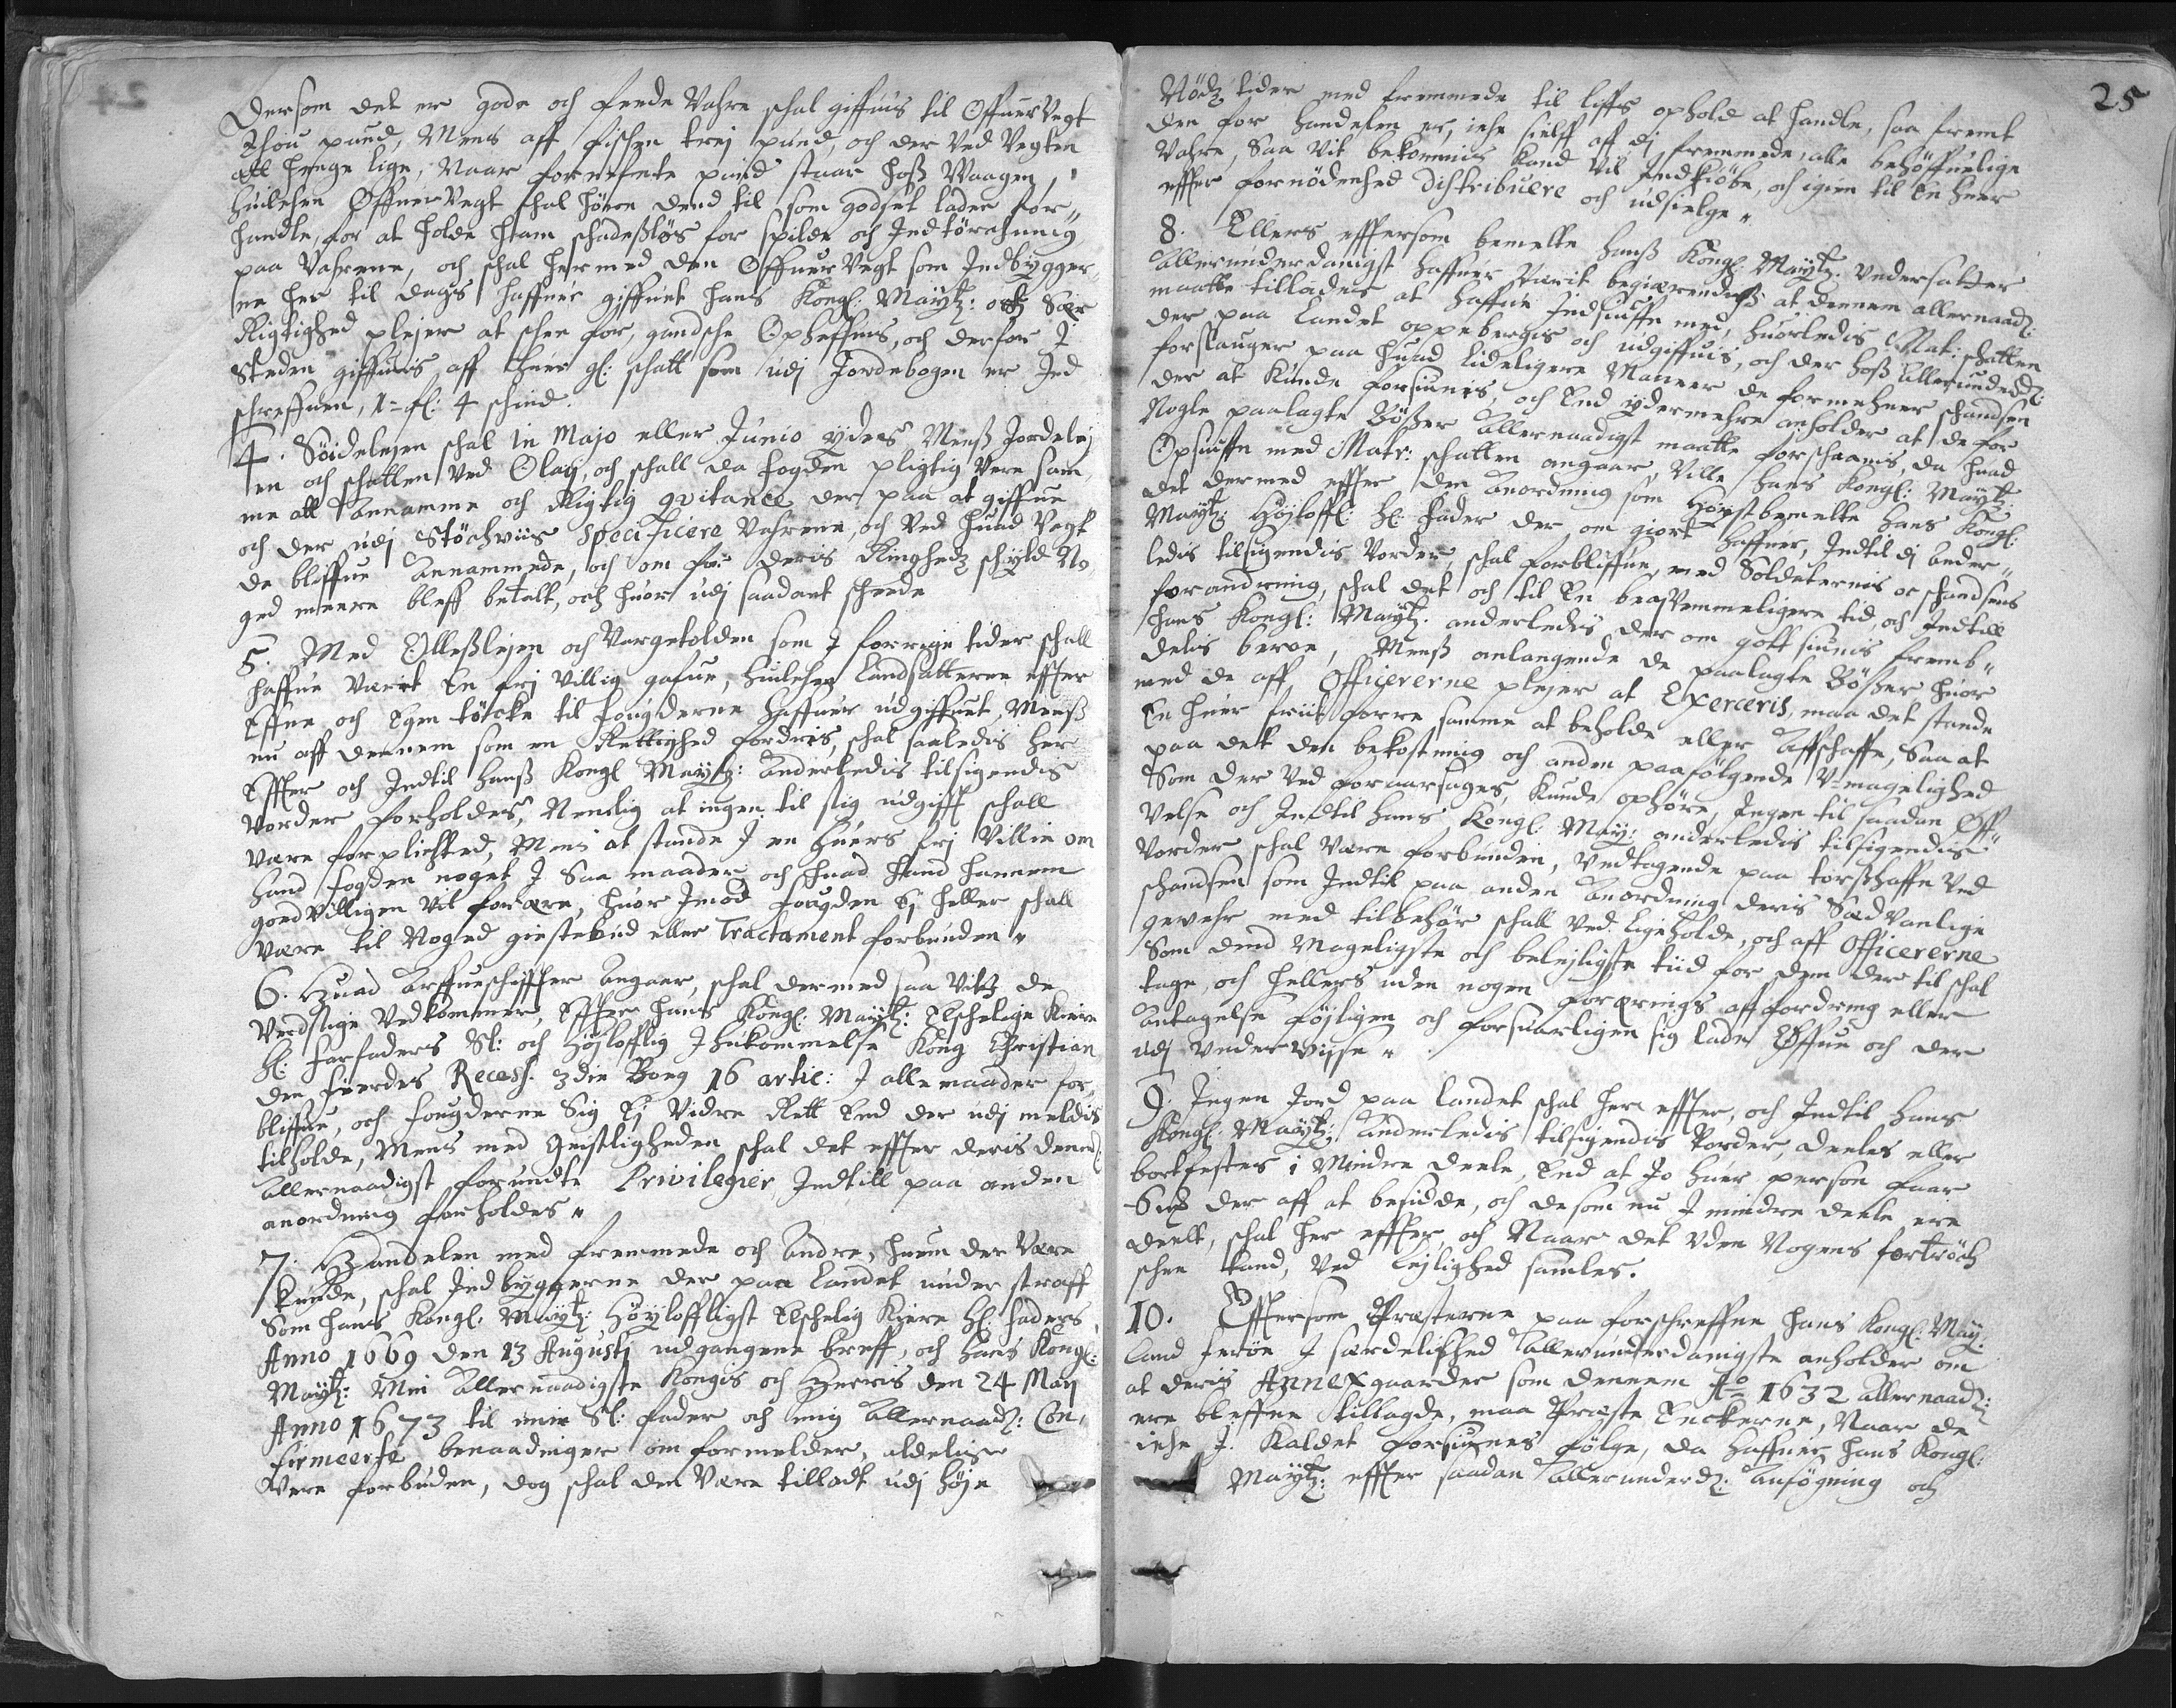 Dersom det er gode och ferde Vahre schal giffuis til Offuer Vegt
Thou pund, Mens aff fischen trej pund, och der Ved Vegten
att henge lige, Naar forneffnte pund staar hoß Waagen,
huilchen Offuer Vegt schal høre dend til som godset lader for„
handle, for at holde ham schadeßløs for spilde och Indtørchning
paa Vahrene, och schal hermed den Offuer Vegt som Indbygger„
ne her til dags haffuer giffuet Hans Kongl: Maytz: och Sær
Rigtighed plejer at schee for, gandsche Opheffuis, och derfor I
Steden giffuis aff huer gl: schatt som udj Jordebogen er Ind
schreffuen, 1 gl: 4 schind.
4. Søidelejen schal in Majo eller Junio yders Menß Jordelej
en och schatten Ved Olaj, och schall da fogden pligtig Vere sam
me att Annamme och Rigtig qvitance der paa at giffue
och der udj Støchviis Specificere Vahrene, och Ved huad Vegt
de bleffue Annammede, och om for deris Ringhedz schyld No„
ged meere bleff betalt, och huor udj saadant scheede
5. Med Olleßlejen och Vargetolden som I forrige tider schall
haffue Været En frj Villig gafue, huilchen Landsatterne effter
Effne och Egen tøtcke til fougderne haffuer udgiffuet, Menß
nu aff dennem som en Rettighed fordris, schal saaledis her
Effter och Indtil Hanß Kongl Maytz: Anderledis tilsigendis
Vorder forholdes, Nemlig at ingen til slig udgifft schall
være forplichted, Mens at stande I en huers frj Villie om
hand fogden noget I Saa maader och huad hand hannem
goedvilligen Vil forære, huor Imod fougden Ej heller schall
Være til Noged giestebud eller Tractament forbunden „
6. Huad Arffueschiffter Angaar, schal dermed saa Vit de
Verdslige Vedkommer, Effter Hans Kongl: Maytz: Elschelige Kiere
Hl: farfaders Sl: och Højlofflig Ihukommelse Kong Christian
den fierdes Recess. 3die Boeg 16 artic: I alle maader for„
bliffue, och fougderne Sig Ej Vidre Rett End der udj meldis
tilholde, Mens med Geistligheden schal det effter deris dennem
Allernaadigst forundte Privilegier Indtill paa anden
anordning forholdes „
7. Handelen med fremmede och Andre, huem der Være
kunde, schal Indbyggerne der paa Landet under straff
Som Hans Kongl: Maytz: Høylofligst Elschelig Kiere Hl: faders
Anno 1669 den 13 Augustj udgangene breff, och Hans Kongl:
Maytz: Min Allernaadigste Kongis och Herris den 24 Maij
Anno 1673 til min Sl: fader och mig Allernaadz: Con„
firmeerte benaadinger om formelder, aldelis
Vere forbuden, dog schal den Være tilladt udj høje
25
Nødz tider med fremmede til liffs ophold at handle, saa fremt
den for handelen er, iche sielff aff dj fremmede, alle behøffuelige
Vahre, Saa Vit bekommis kand Vil Indkiøbe, och igien til En huer
effter fornødenhed Distribuere och udsielge „
8. Ellers efftersom bemelte Hanß Kongl: Maytz. Undersatter
Allerunderdanigst haffuer Værit begierendis at dennem allernaadz:
maatte tillades at haffue Indseuffn med, huorledis Mat: schatten
der paa Landet oppebergis och udgiffuis, och der hoß Allerunderdz:
forslauger paa huad lideligere Maneer de formehner schandsen
der at kunde forsiunis, och End ydermehre anholder at de for
Nogle paalagte Bøßer Allernaadigst maatte forschaanis, da huad
Opsiufn med Matr: schatten angaar, Ville Hans Kongl: Maytz:
det dermed effter den Anordning som Høystbemelte Hans Kongl:
Maytz: Højlofl: Hl: fader der om giort haffuer, Indtil dj Ander„
ledis tilsigendis Vorder, schal forbliffue, med Soldeternis oc schandsens
forandring, schal det och til En beqVemmeligere tid, och Indtill
Hans Kongl: Maytz. anderledis der om gott siunis fremb„
delis beroe, Menß anlangende de paalagte Bøßer huor
med de aff Officererne plejer at Exerceris, maa det stande
En huer friit forre samme at beholde eller Affschaffe, Saa at
paa det den bekostning och anden paafølgende V=magelighed
Som der Ved foraarsages, kunde ophøre, Ingen til saadan Off„
Velse och Indtil Hans Kongl: May: anderledis tilsigendis
Vorder schal Være forbunden, Undtagende paa torßhaffn Ved
schandsen som Indtil paa anden Anordning deris SædVanlige
geVehr med tilbehør schall Ved lige holde, och aff Officererne
Som dend Mageligste och belejligste tiid for dem der til schal
tage, och hellers uden nogen forærings affordring eller
Antagelse føjligen och forsuarligen sig lade Øffue och der
udj UnderVisse „
9. Ingen Jord paa landet schal her effter, och Indtil Hans
Kongl: Maytz: Anderledis tilsigendis Vorder, deeles eller
bortfestes i Mindre deele, End at Jo huer person faar
Sex der aff at besidde, och de som nu I mindre deele ere
deelt, schal her effter, och Naar det Uden Nogens fortrøch
schee kand, Ved Lejlighed samles.
10. Efftersom Præsterne paa forschreffne Hans Kongl: May:
Land ferøe I særdelished Allerunderdanigste anholder om
at deris Annexgaarder som dennem Ao 1632 allernaadz:
ere bleffne tillagde, maa Præste Enckerne, Naar de
iche I Kaldet forsiunes følge, da haffuer Hans Kongl:
Maytz: effter saadan Allerunderdz: Ansøgning och